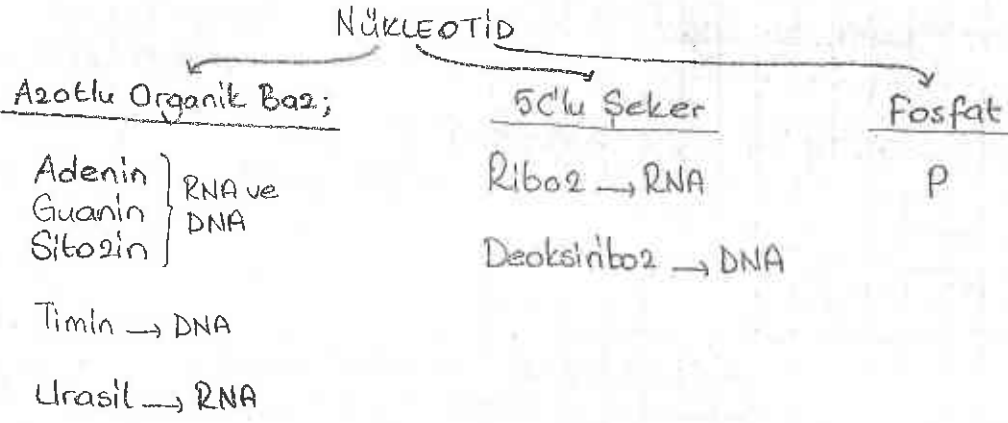 NÜKLEOTİD
Azotlu Organik Baz;
Adenin
Guanin
Sitozin
RNA ve
DNA
Timin → DNA
Urasil → RNA
5C'lu Şeker
Riboz → RNA
Deoksiriboz → DNA
Fosfat
P